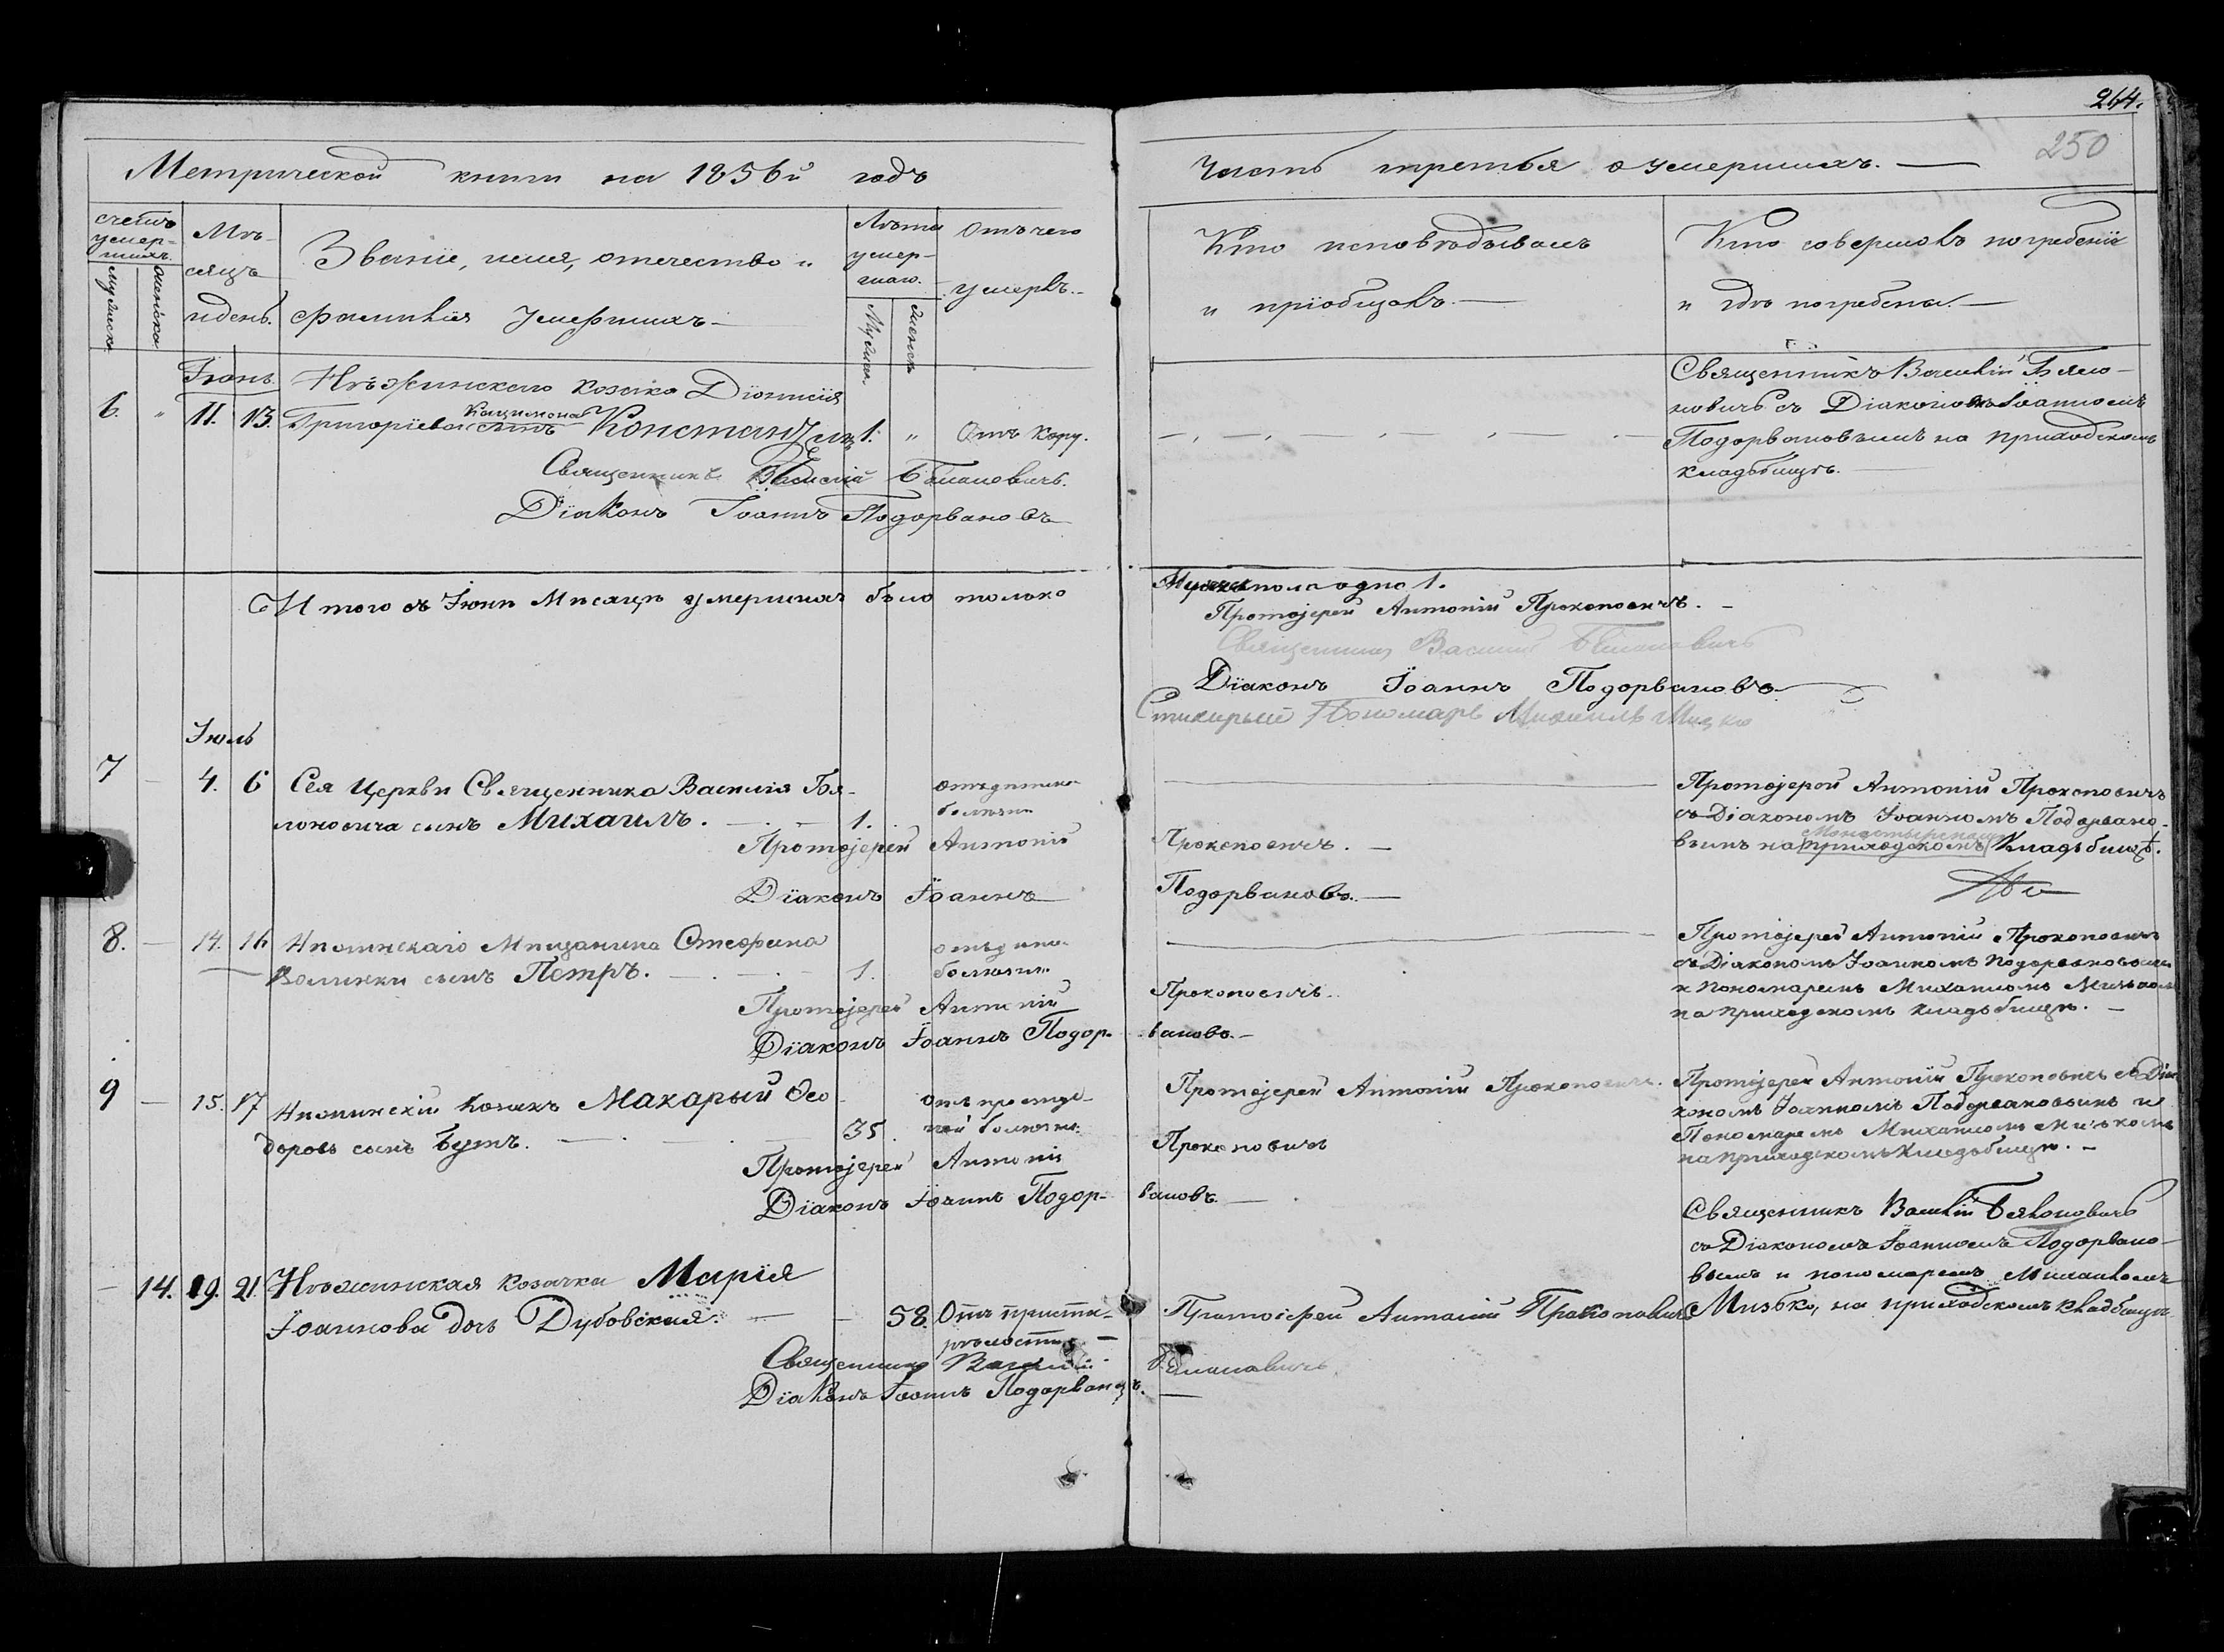 264.
250
Метрической книги на 1856й годъ
Часть третья о умершихъ.
счетъ умер-
шихъ.
мужеска
женска
Мѣ-
сяцъ
и день.
Званіе, имя, отечество и
фамилія умершихъ
Лѣта
умер-
шаго.
Мужеск.
женск.
Отъ чего
умеръ.
Кто исповѣдывалъ
и пріобщалъ.
Кто совершалъ погребеніе
и гдѣ погребены.
Іюнь
6. " 11. 13. Нѣжинскаго козака Діонисія
Григоріева сынъ Константинъ 1. " Отъ кору.
Священникъ Василій Бѣлановичь.
Діаконъ Іоаннъ Подорвановъ
Священникъ Василій Бяло-
новичь съ Діакономъ Іоанномъ
Подорвановымъ на приходскомъ
кладбищѣ.
Итого въ Іюнѣ Мѣсяцѣ умершихъ было только
Мужеска пола одно 1.
Протоіерей Антоній Прокоповичъ.
Священникъ Василій
Діаконъ Іоаннъ Подорвановъ
Стихарный Пономарь Михаилъ
Іюль
7 4. 6 Сея Церкви Священника Василія Бя-
лоновича сынъ Михаилъ. 1. отъ дѣтской
болѣзни
Протоіерей Антоній Прокоповичъ.
Діаконъ Іоаннъ Подорвановъ.
Протоіерей Антоній Прокоповичъ
съ Діакономъ Іоанномъ Подорвано-
монастырскомъ
вымъ на приходскомъ Кладбищѣ.
8. 14. 16 Нѣжинскаго Мѣщанина Стефана
Волинки сынъ Петръ. 1.
болѣзни
Протоіерей Антоній Прокоповичъ.
Діаконъ Іоаннъ Подор- вановъ.
Протоіерей Антоній Прокоповичъ
съ Діакономъ Іоанномъ Подорвановымъ
и Пономаремъ Михаиломъ
на приходскомъ кладбищѣ.
9 15. 17 Нѣжинскій Козакъ Макарый Ѳео-
доровъ сынъ Бутъ. 35. отъ простуд-
ной болѣзни. Протоіерей Антоній Прокоповичъ.
Протоіерей Антоній Прокоповичъ
Діаконъ Іоаннъ Подор- вановъ.
Протоіерей Антоній Прокоповичъ съ Діа-
кономъ Іоанномъ Подорвановымъ и
Пономаремъ Михаиломъ
на приходскомъ Кладбищѣ.
14. 19. 21. Нѣжинская козачка Марія
Іоаннова дочь Дубовская. 58. Отъ преста-
рѣлости. Протоіерей Антоній Прокоповичъ
Священникъ Василій Бѣлановичь
Діаконъ Іоаннъ Подорвановъ.
Священникъ Василій Бялоновичь
съ Діакономъ Іоанномъ Подорвано-
вымъ и пономаремъ Михаиломъ
на приходскомъ кладбищѣ